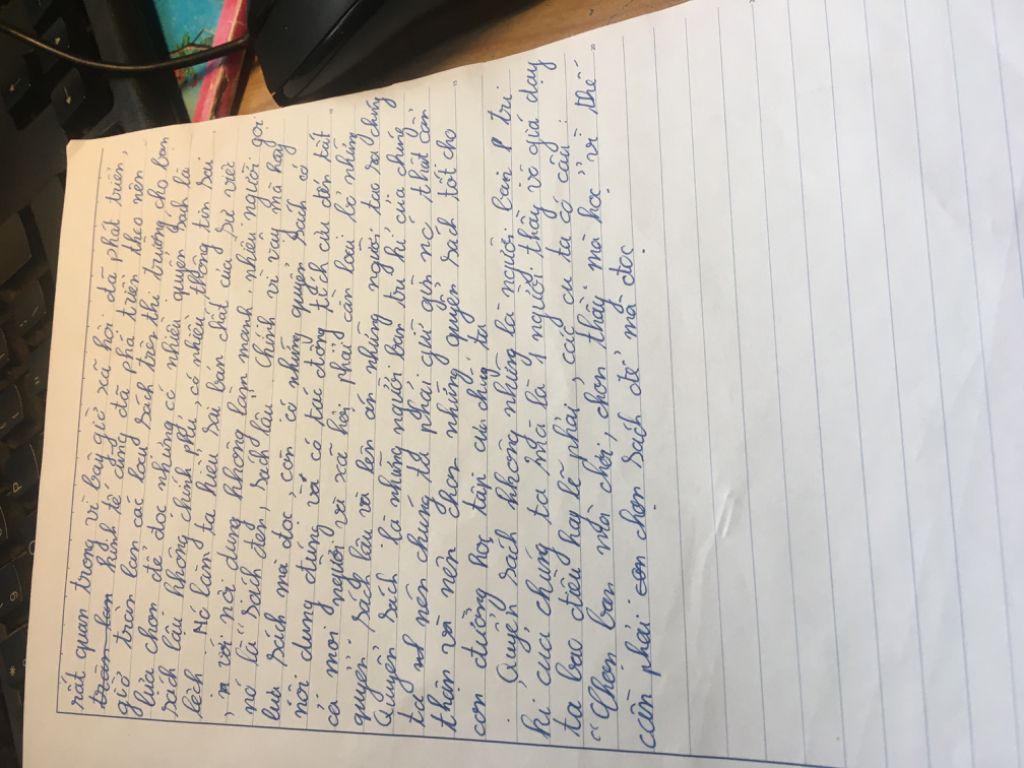 rất quan trọng vì bây giờ xã hội đã phát triển,
tràn lan kinh tế cũng đã phá triển theo nên
giờ tràn lan các loại sách trên thi trường cho bạn
lựa chọn để đọc nhưng có nhiều quyển sách là
sách lậu không chính phủ, có nhiều thông tin sai
lệch. Nó làm ta hiểu sai bản chất của sự việc
, với nội dung không lành mạnh nhiều người gọi
nó là sách đen, sách lậu. Chính vì vậy mà hãy
lưu sách mà đọc, còn có những quyển sách có
nội dung đúng và có tác động tích cực đến tất
cả mọi người và xã hội, phải cần loại bỏ những
quyển sách lậu và lên án những người tạo ra chúng
Quyển sách là những người bạn tri kỉ của chúng
ta nên chúng ta phải giữ gìn nó thật cẩn
thận và nên chọn những quyển sách tốt cho
con đường học tập của chúng ta
. Quyển sách không những là người bạn tri
kỉ của chúng ta mà là 1 người thầy vô giá dạy
ta bao điều hay lẽ phải, các cụ ta có câu :
“Chọn bạn mà chơi, chọn thầy mà học” vì thế
cần phải chọn sách để mà đọc.